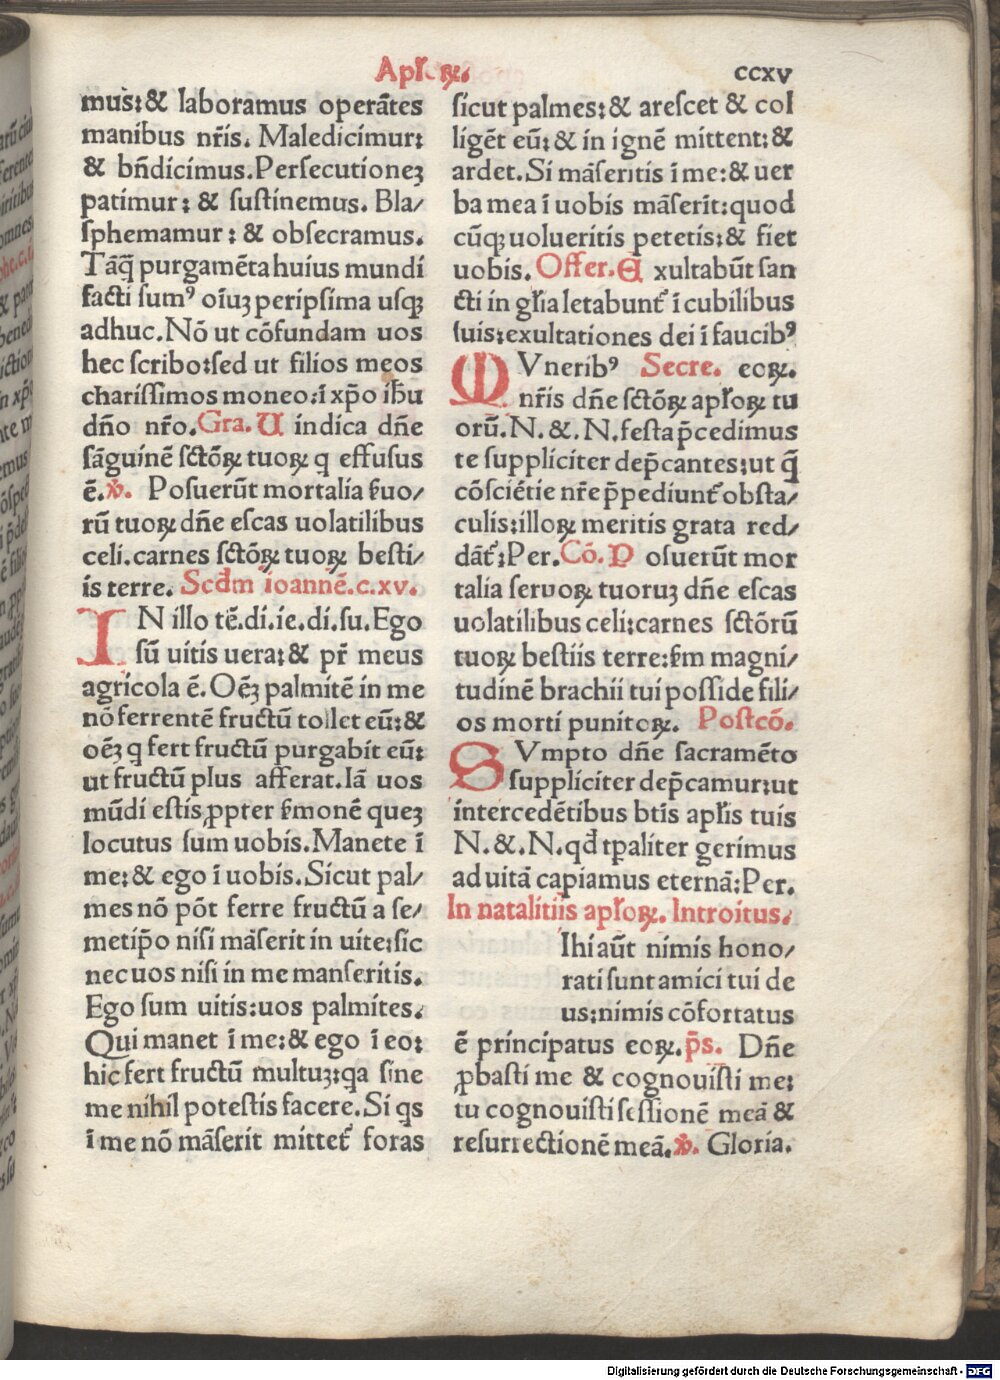 Apl'oꝝ.
ccxv
mus:& laboramus operātes
manibus nr̄is. Maledicimur:
& bn̄dicimus. Persecutionez
patimur: & sustinemus. Bla/
sphemamur: & obsecramus.
Tāq̄ purgamēta huius mundi
facti sumꝰ oīuꝫ peripsima usqꝫ
adhuc. Nō ut cōfundam uos
hec scribo:sed ut filios meos
charissimos moneo:ī xp̄o ihū
dn̄o nr̄o. Gra. U indica dn̄e
sāguinē sctōꝝ tuoꝝ q effusus
ē. ℣. Posuerūt mortalia ẜuo/
rū tuoꝝ dn̄e escas uolatilibus
celi. carnes sctōꝝ tuoꝝ besti/
is terre. Scd̄m ioannē.c.xv.
IN illo tē.di.ie.di.su. Ego
sū uitis uera:& pr̄ meus
agricola ē. Oēꝫ palmitē in me
nō ferrentē fructū tollet eū:&
oēꝫ q fert fructū purgabit eū:
ut fructū plus afferat. Iā uos
mūdi estis ꝓpter ẜmonē queꝫ
locutus sum uobis. Manete ī
me: & ego ī uobis. Sicut pal/
mes nō pōt ferre fructū a se/
metip̄o nisi māserit in uite:sic
nec uos nisi in me manseritis.
Ego sum uitis:uos palmites.
Qui manet ī me:& ego ī eo:
hic fert fructū multuꝫ:qa sine
me nihil potestis facere. Si qs
ī me nō māserit mittet' foras
sicut palmes:& arescet & col
ligēt eū:& in ignē mittent:&
ardet. Si māseritis ī me:& uer
ba mea ī uobis māserīt:quod
cūqꝫ uolueritis petetis:& fiet
uobis. Offer. E xultabūt san
cti in gl'ia letabunt' ī cubilibus
suis:exultationes dei ī faucibꝰ
MVneribꝰ Secre. eoꝝ.
nr̄is dn̄e sctōꝝ apl'oꝝ tu
orū. N. &. N. festa p̄cedimus
te suppliciter dep̄cantes:ut q̄
cōsciētie nr̄e p̄pediunt' obsta/
culis:illoꝝ meritis grata red/
dāt':Per. Cō. P osuerūt mor
talia seruoꝝ tuoruꝫ dn̄e escas
uolatilibus celi:carnes sctōrū
tuoꝝ bestiis terre:ẜm magni/
tudinē brachii tui posside fili/
os morti punitoꝝ. Postcō.
SVmpto dn̄e sacramēto
suppliciter dep̄camur:ut
intercedētibus btīs apl'is tuis
N. &. N. qd̄ tꝑaliter gerimus
ad uitā capiamus eternā:Per.
In natalitiis apl'oꝝ. Introitus.
Ihi aūt nimis hono/
rati sunt amici tui de
us:nimis cōfortatus
ē principatus eoꝝ. p̄s. Dn̄e
ꝓbasti me & cognouisti me:
tu cognouisti sessionē meā &
resurrectionē meā. ℣. Gloria.
Digitalisierung gefördert durch die Deutsche Forschungsgemeinschaft - DFG